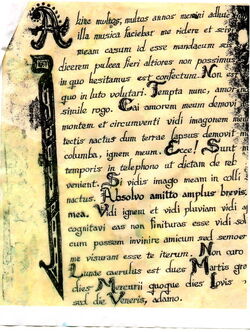 Abhinc multos, multos annos memini adhuc
illa musica faciebat me ridere et seivi
meam casum id esse mandacum se
dicerem pulcea fieri altiores non possimus
in quo hesitamus est confectum. Non est
quo in luto volutari. Tempta nunc, amor
simile rogo. Cai amorem meum demovi
montem et circumventi vidi imagonem me
tectis nactus dum terrae lapsus demovit
columba, ignem meum. Ecce! Sunt
temporis in telephono ut dictam de reb
venient. Si vidis imago meam in colli
nactus. Absolvo amitto amplus brevis
mea. Vidi ignem et vidi pluviam vidi
cognitavi eas non finituras esse vidi s
cum possem invinire amicum sed semoer
me visuram esse te iterum. Non curo
Lunae caerulus est dues Martis gr
dies Mercurii quoque dies Iovis
sed die Veneris, adamo.